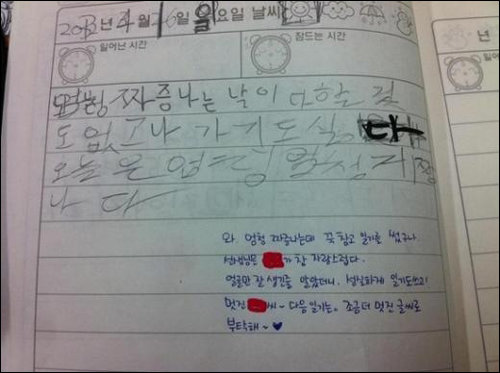 2012년 4월 1일 일요일 날씨
일어난 시간 잠드는 시간
년
일어
엄청 짜증나는 날이다 할 일
도 없고 나가기도 싫 다
오늘은 엄청 짜
나다
와 엄청 짜증나는데 꾹참고 일기를 썼구나
선생님은 가 참 자랑스럽다.
얼굴만 잘 생긴줄 알았더니, 성실하게 일기도쓰고
멋진 씨~ 다음 일기는, 조금더 멋진 글씨로
부탁해~ ♥